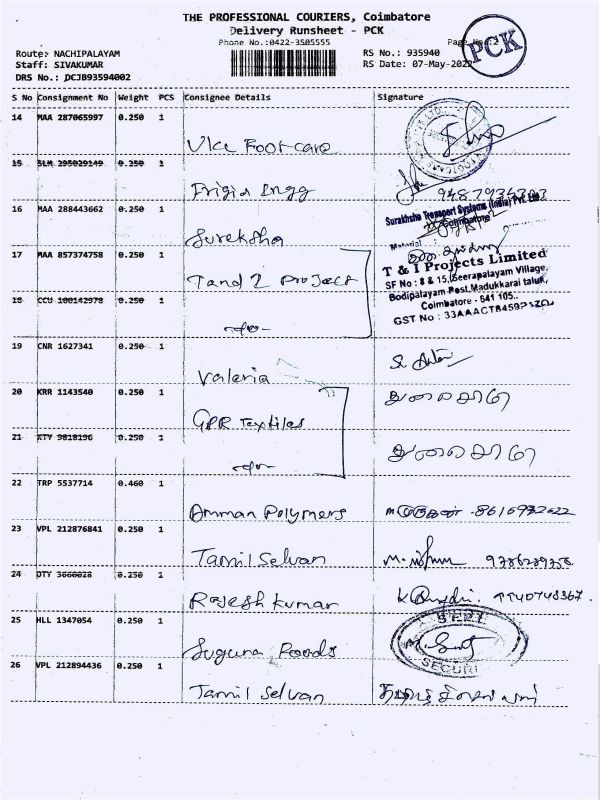 THE PROFESSIONAL COURIERS, Coimbatore
Delivery Runsheet - PCK
Phone No.:0422-3505555
Page No.:2
PCK
Route: NACHIPALAYAM
Staff: SIVAKUMAR
DRS No.: DCJB93594002
RS No.: 935940
RS Date: 07-May-2022
S No Consignment No Weight PCS Consignee Details Signature
14 MAA 287065997 0.250 1
Vice Footcare
15 SLM 295029149 0.250 1
Frigia Engg
16 MAA 288443662 0.250 1
Sureksha
Suraksha Transport Systems (India) Pvt. Ltd.
Coimbatore
17 MAA 857374758 0.250 1
T and I Project
T & I Projects Limited
SF No : 8 & 15, Seerapalayam Village,
Bodipalayam Post, Madukkarai taluk,
Coimbatore - 641 105.
GST No : 33AAACT8459P1ZQ
18 CCU 100142978 0.250 1
-do-
19 CNR 1627341 0.250 1
Valeria
20 KRR 1143540 0.250 1
GPR Textiles
துரைசாமி
21 KTY 9818196 0.250 1
-do-
துரைசாமி
22 TRP 5537714 0.460 1
Amman Polymers
23 VPL 212876841 0.250 1
Tamil Selvan
24 DTY 3660028 0.250 1
Rajesh Kumar
25 HLL 1347054 0.250 1
Suguna Foods
26 VPL 212894436 0.250 1
Tamil Selvan